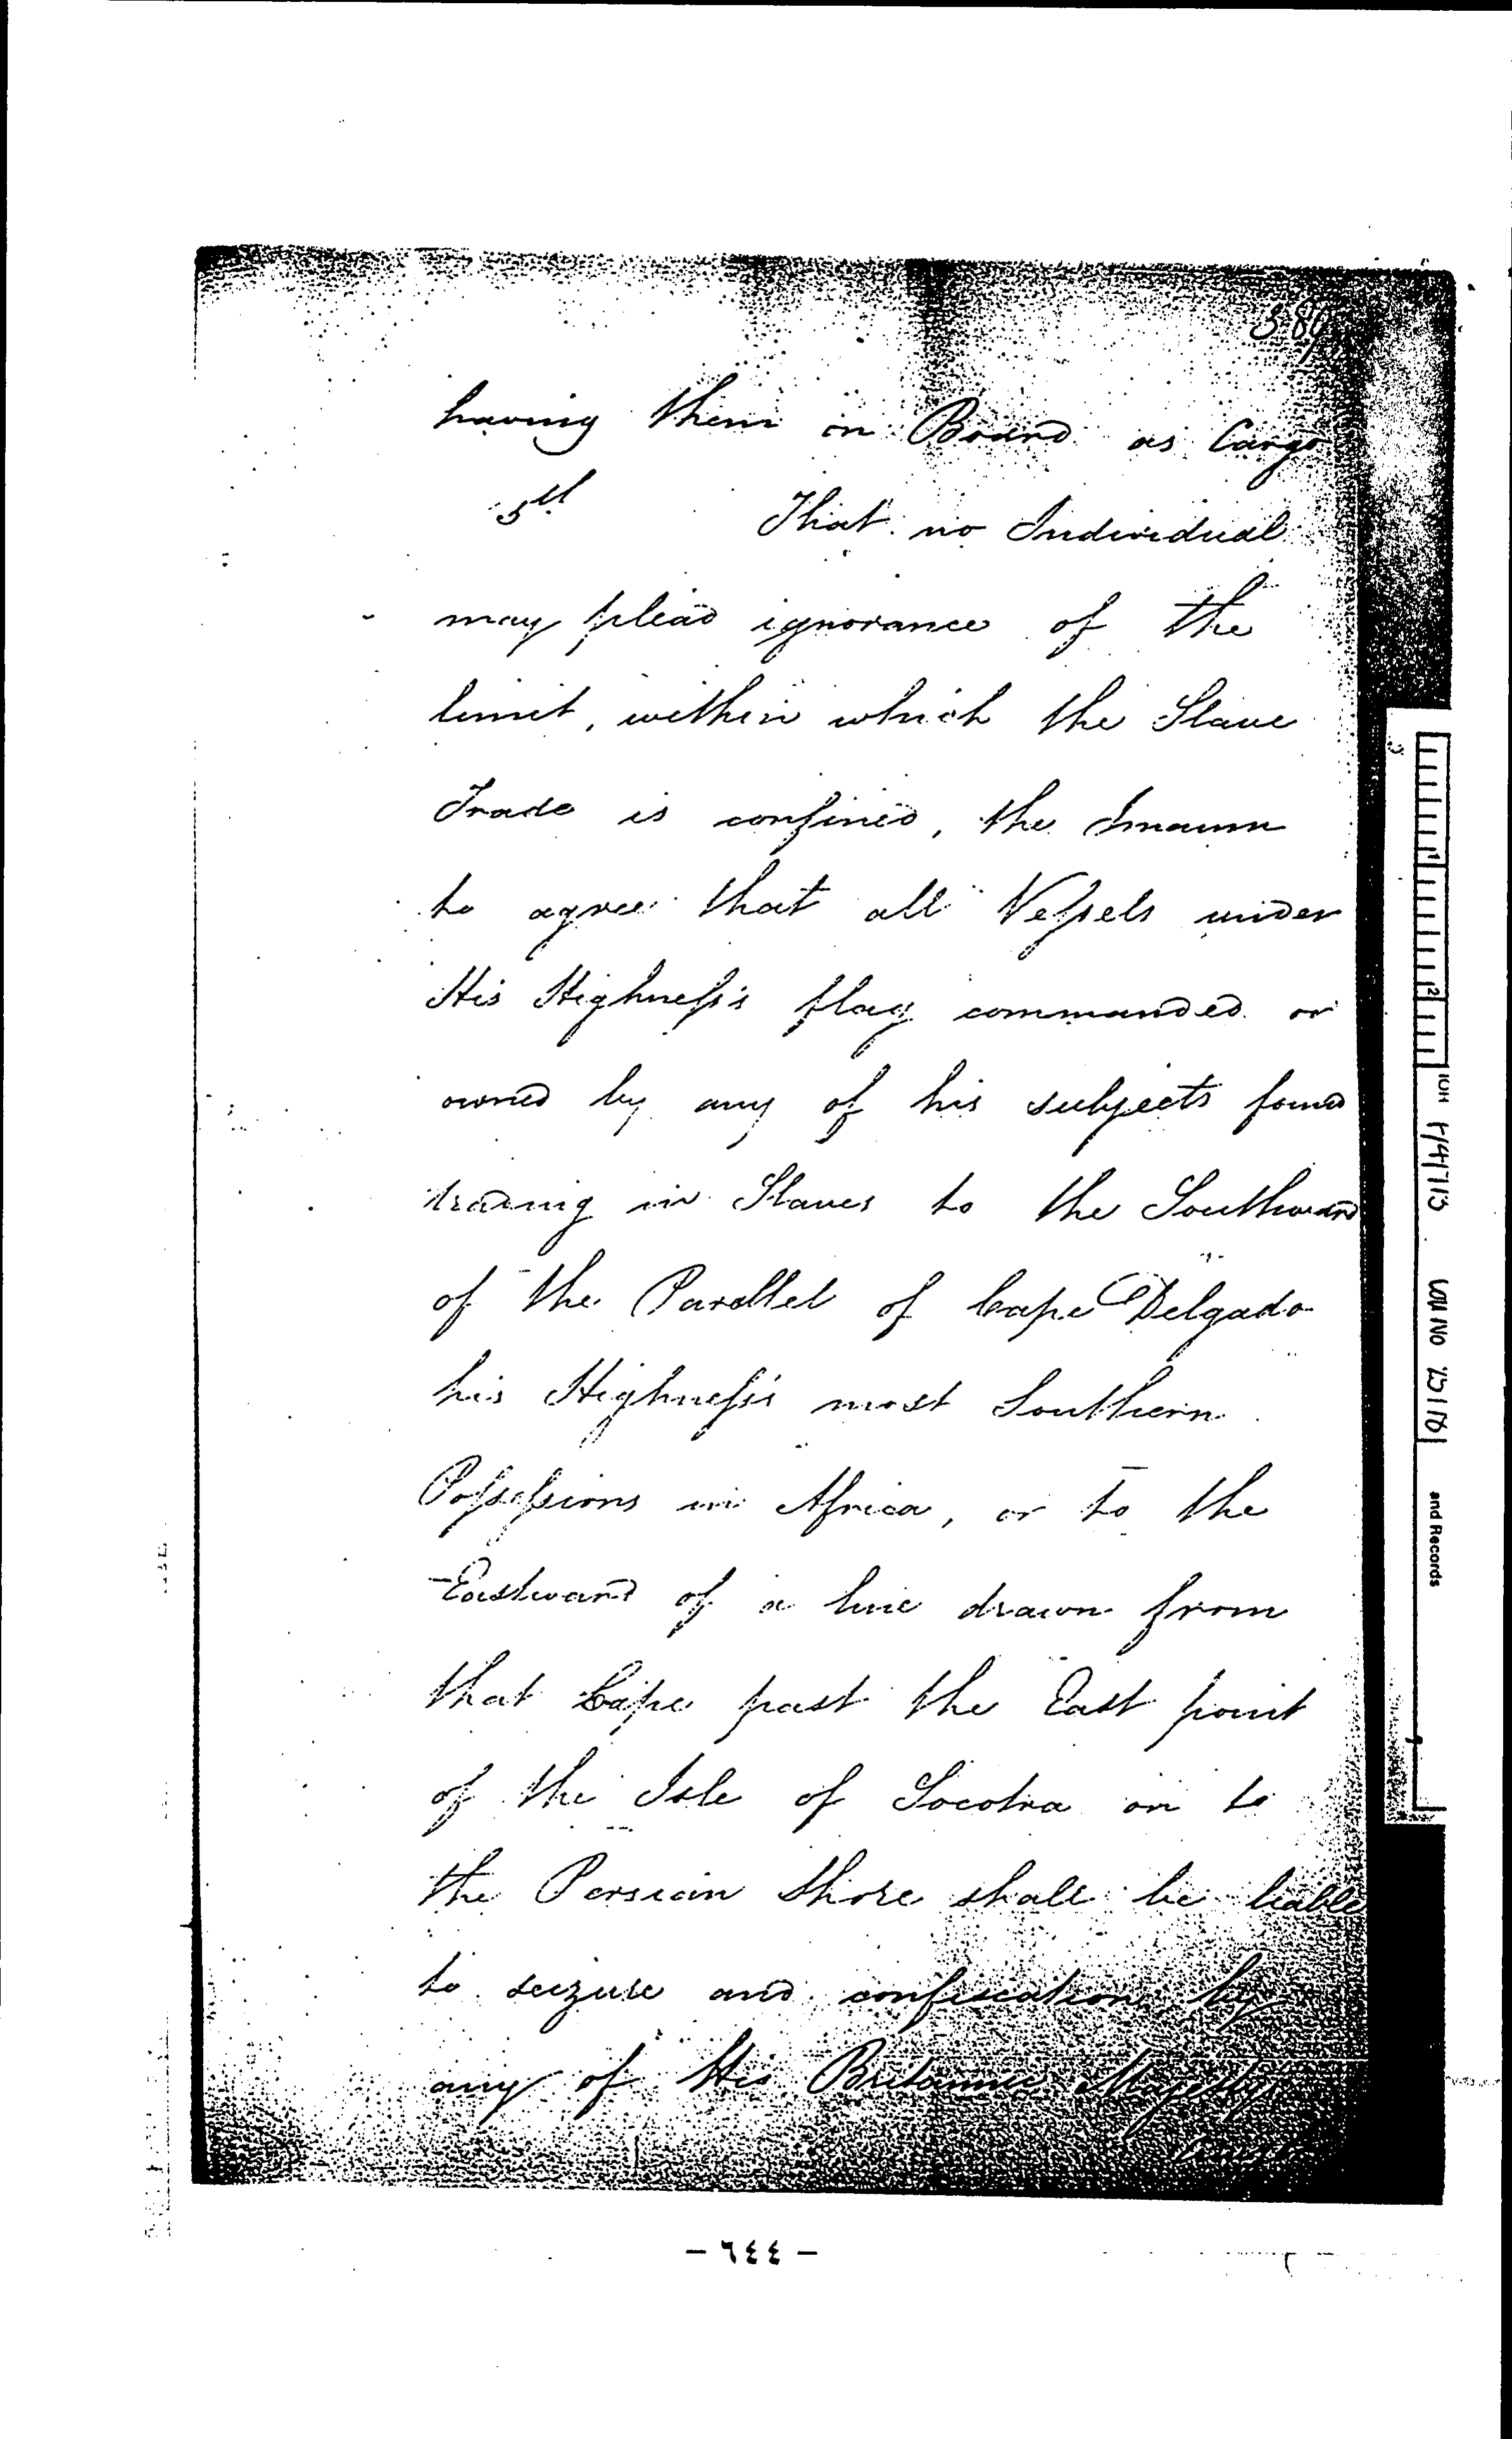 having them on Board as Cargo
5th That no Individual
may plead ignorance of the
limit, within which the Slave
Trade is confined, the Imaum
to agree that all Vessels under
His Highness's flag commanded or
owned by any of his subjects found
trading in Slaves to the Southward
of the Parallel of Cape Delgado
his Highness's most Southern
Possessions in Africa, or to the
Eastward of a line drawn from
that Cape past the East point
of the Isle of Socotra on to
the Persian Shore shall be liable
to seizure and confiscation by
any of His Britannic Majesty's
and Records
- ٦٤٤ -